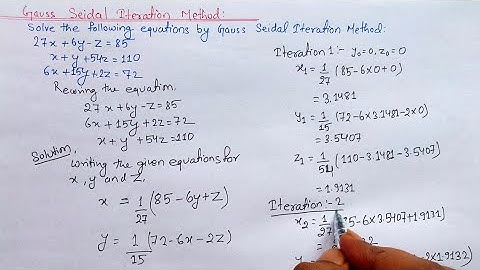 Gauss Seidal Iteration Method:
Solve the following equations by Gauss Seidal Iteration Method:
27x + 6y - z = 85
x + y + 54z = 110
6x + 15y + 2z = 72
Rewriting the equation,
27x + 6y - z = 85
6x + 15y + 2z = 72
x + y + 54z = 110
Solution,
Writing the given equations for
x, y and z.
x = 1/27 (85 - 6y + z)
y = 1/15 (72 - 6x - 2z)
Iteration 1:- y₀=0, z₀=0
x₁ = 1/27 (85 - 6×0 + 0)
= 3.1481
y₁ = 1/15 (72 - 6×3.1481 - 2×0)
= 3.5407
z₁ = 1/54 (110 - 3.1481 - 3.5407)
= 1.9131
Iteration:- 2
x₂ = 1/27 85 - 6×3.5407 + 1.9131)